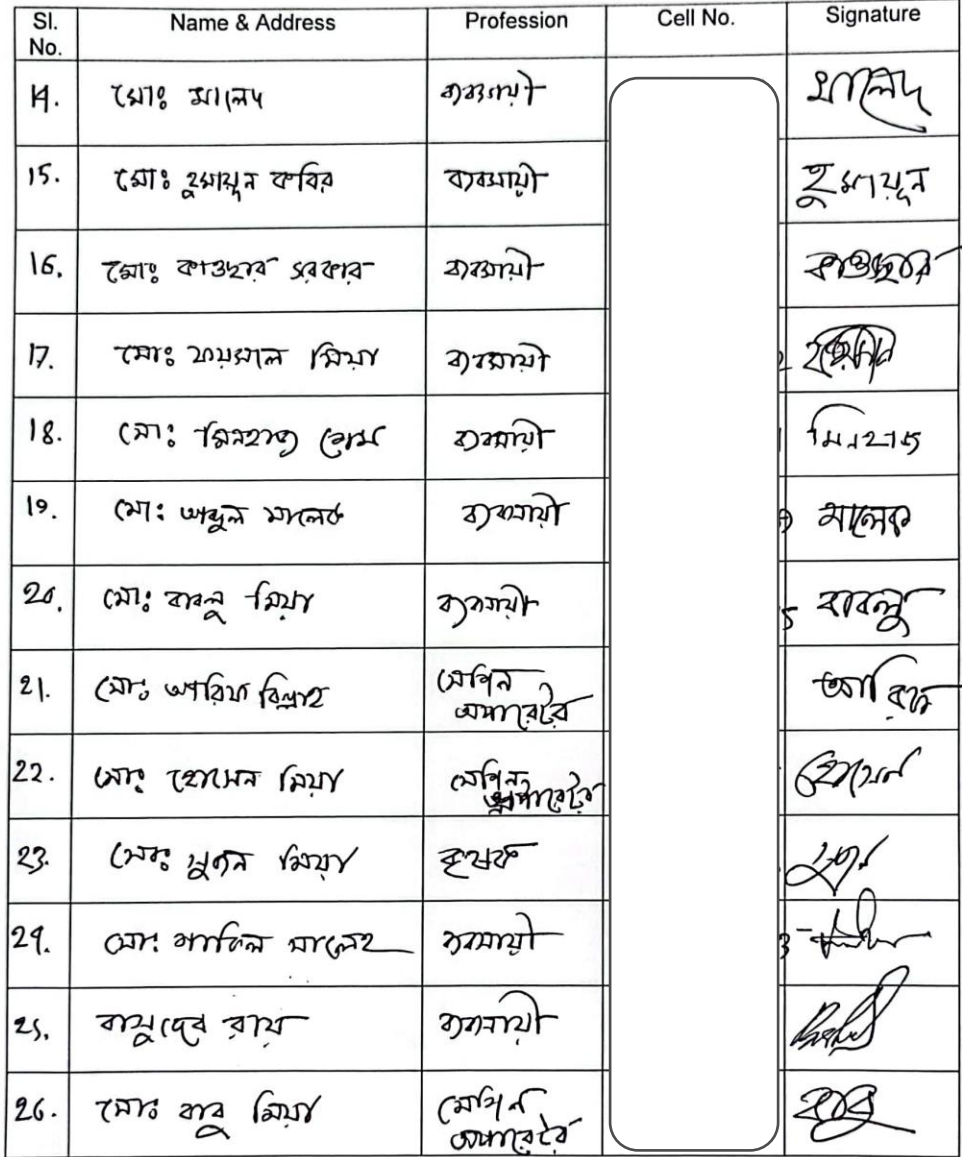 Sl. No. Name & Address Profession Cell No. Signature
14. মোঃ খালেদ ব্যবসায়ী খালেদ
15. মোঃ হুমায়ুন কবির ব্যবসায়ী হুমায়ুন
16. মোঃ কাওছার সরকার ব্যবসায়ী কাওছার
17. মোঃ ফয়সাল মিয়া ব্যবসায়ী
18. মোঃ মিনহাজ ব্যবসায়ী মিনহাজ
19. মোঃ আব্দুল মালেক ব্যবসায়ী মালেক
20. মোঃ বাবলু মিয়া ব্যবসায়ী বাবলু
21. মোঃ আরিফ বিল্লাহ মেশিন অপারেটর আরিফ
22. মোঃ হোসেন মিয়া মেশিন অপারেটর হোসেন
23. মোঃ মিয়া কৃষক
24. মোঃ সালেহ ব্যবসায়ী
25. বাসুদেব রায় ব্যবসায়ী
26. মোঃ বাবু মিয়া মেশিন অপারেটর বাবু